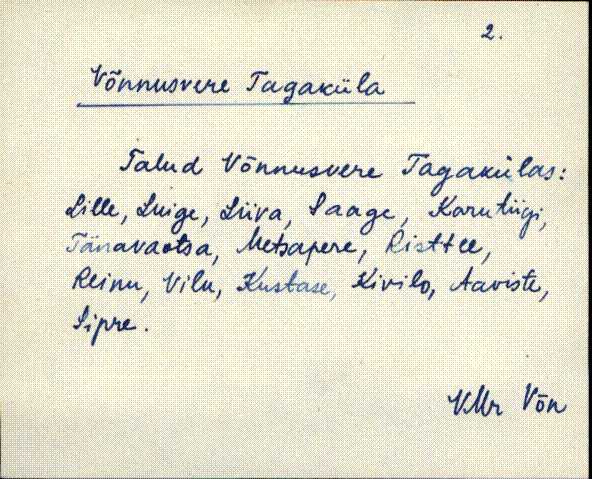 2.
Võnnusvere Tagaküla
Talud Võnnusvere Tagakülas:
Lille, Luige, Liiva, Saage, Karutiigi,
Tänavaotsa, Metsapere, Risttee,
Reinu, Vilu, Kustase, Kivilo, Aaviste,
Sipre.
VMr Võn